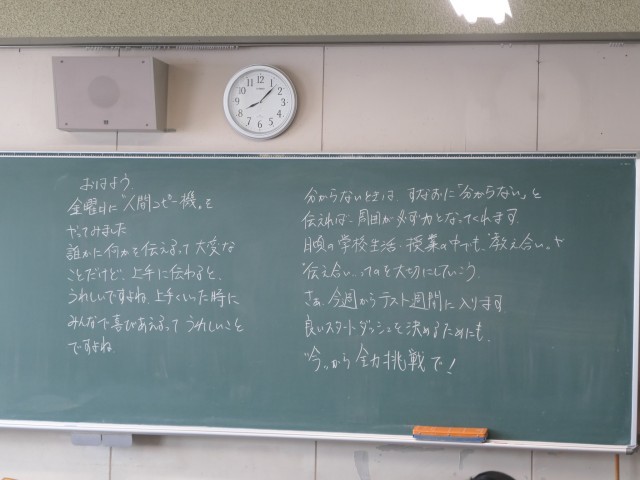 おはよう。
金曜日に"人間コピー機"を
やってみました
誰かに何かを伝えるって大変な
ことだけど、上手に伝わると、
うれしいですよね。上手くいった時に
みんなで喜びあえるって うれしいこと
ですよね
分からないときは、すなおに「分からない」と
伝えれば 周囲が必ず力となってくれます。
日頃の学校生活・授業の中でも、"教え合い"や
"伝え合い"ってのを大切にしていこう。
さぁ、今週からテスト週間に入ります。
良いスタートダッシュを決めるためにも、
"今"から 全力挑戦で!
12
1
2
3
4
5
6
7
8
9
10
11